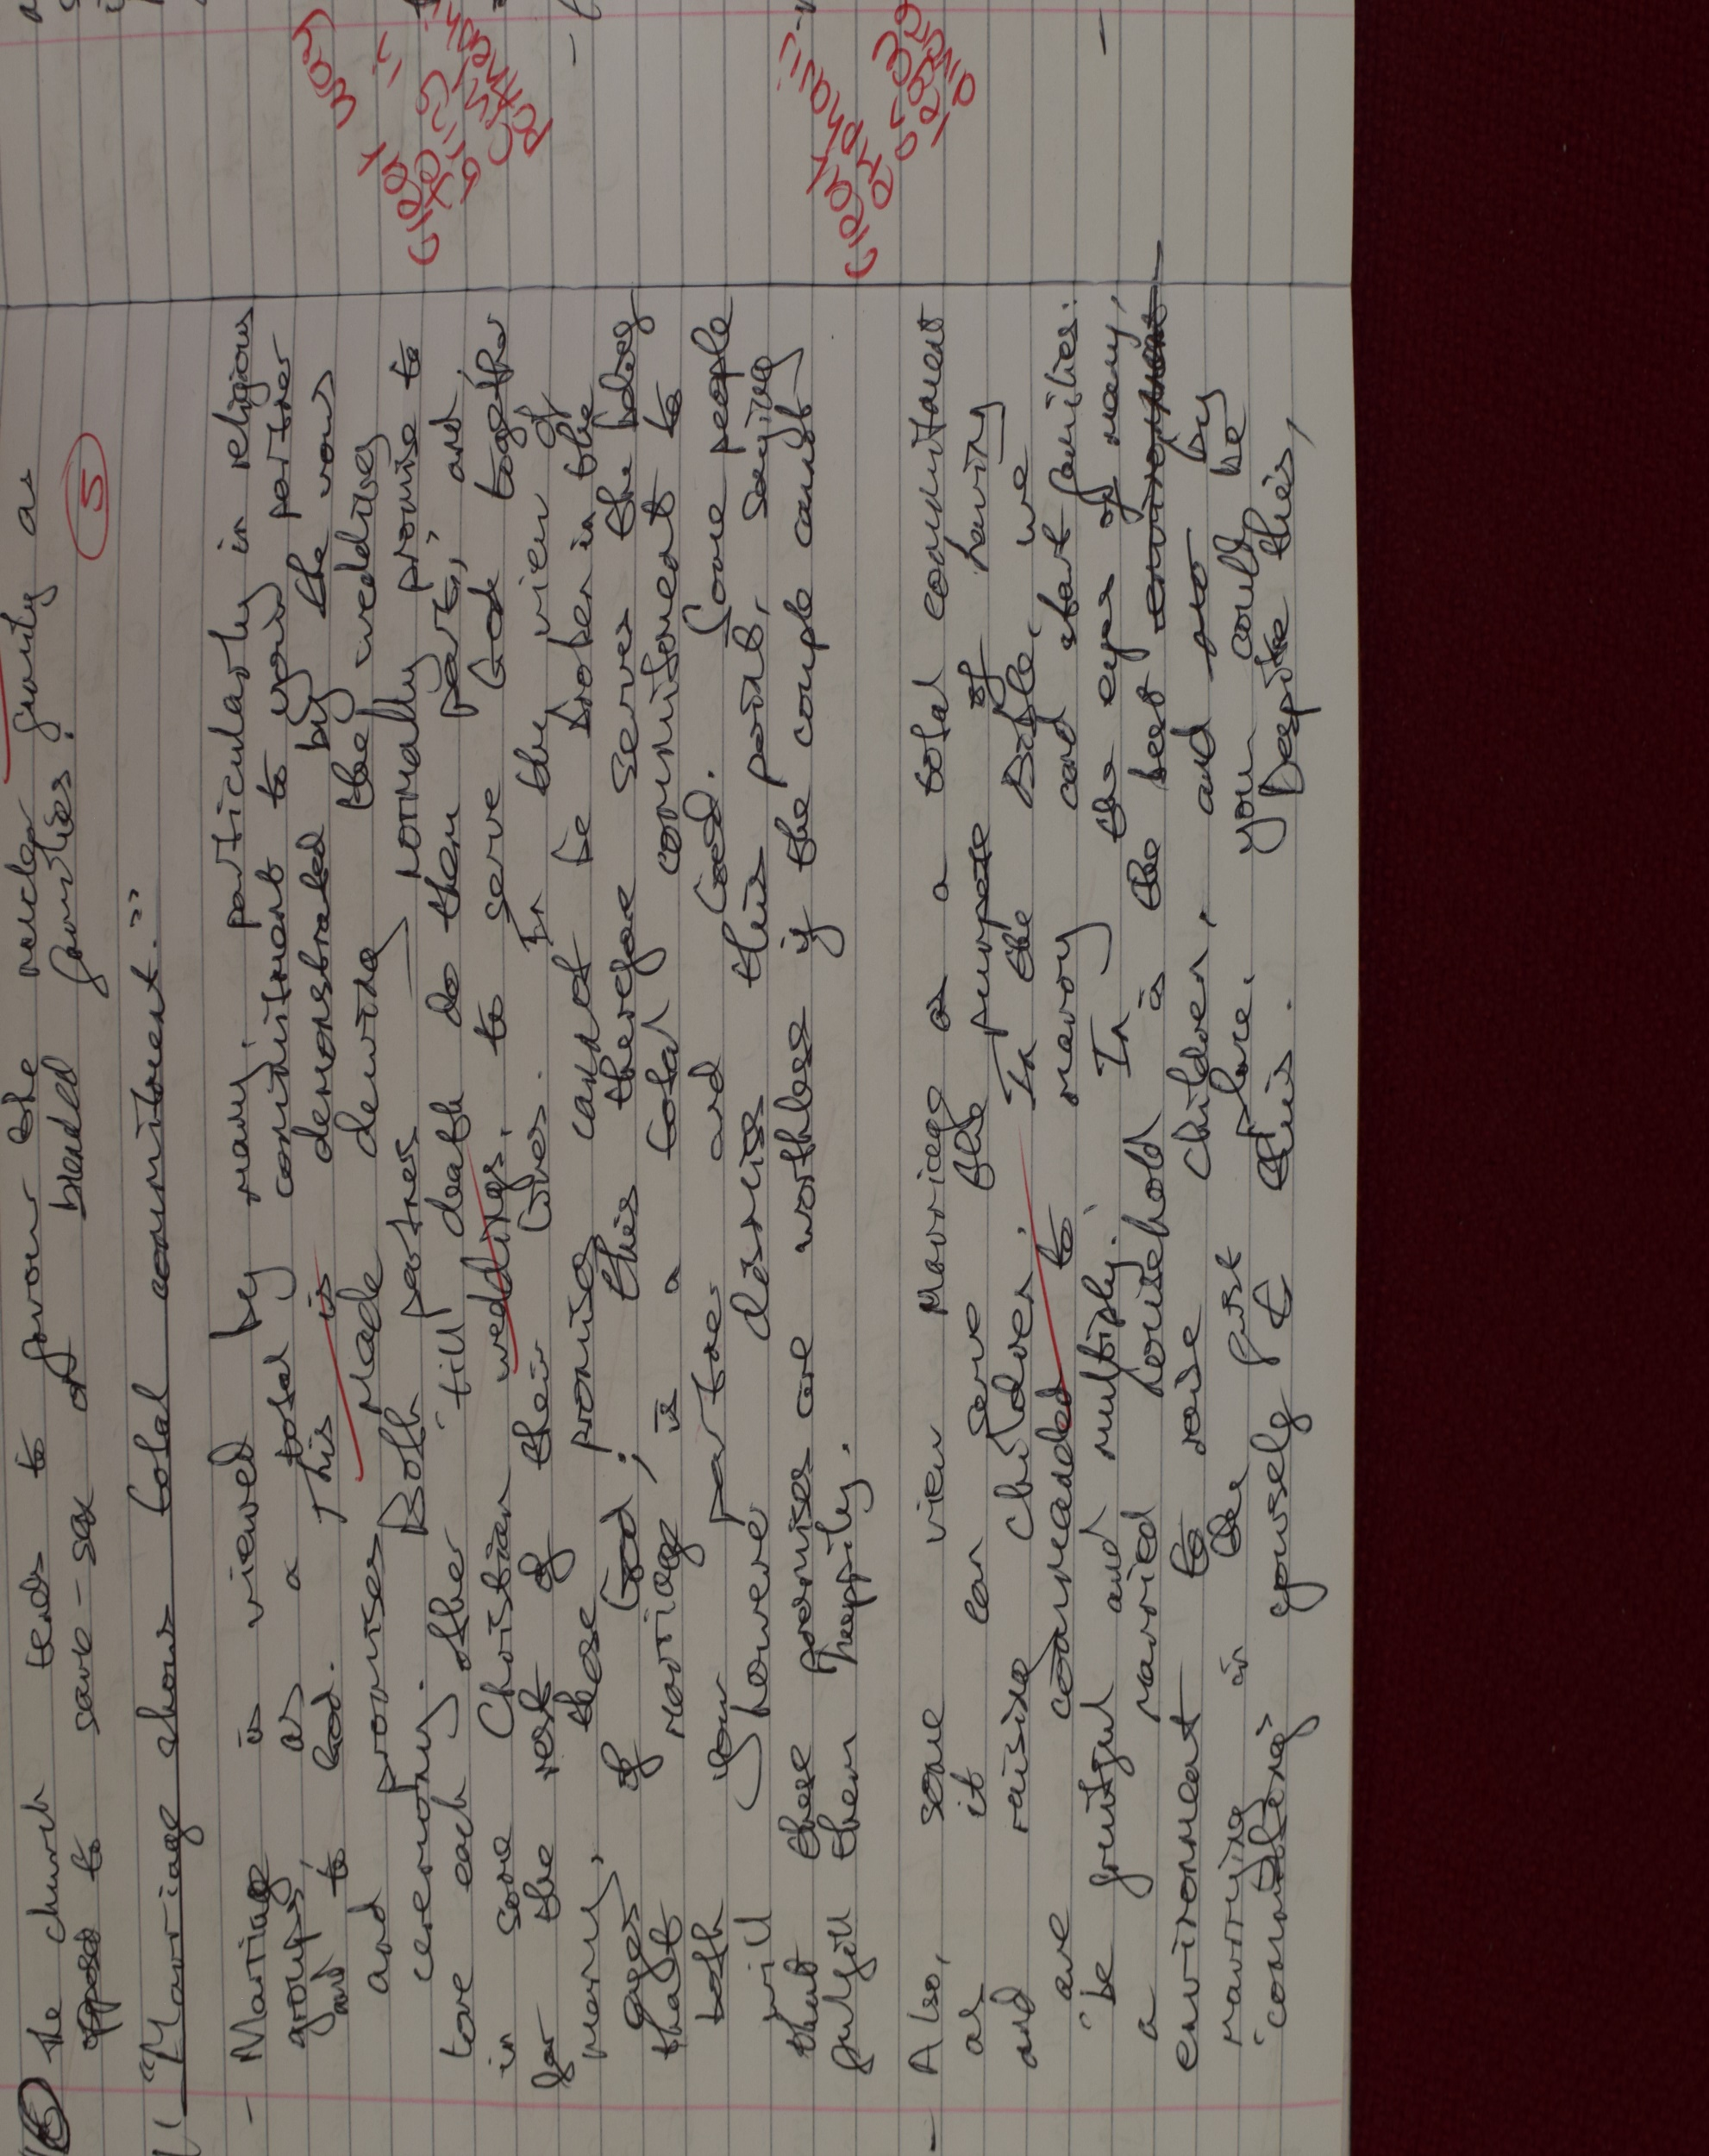 The church tends to favour the nuclear family as
opposed to same-sex or blended families.
5
"Marriage shows total commitment."
- Marriage is viewed by many, particularly in religious
groups, as a total commitment to your partner
and to God. This is demonstrated by the vows
and promises made during the weddings
ceremony. Both partners normally promise to
love each other 'till death do them part,' and,
in some Christian weddings, to serve God together
for the rest of their lives. In the view of
many, these promises cannot be broken in the
eyes of God; this therefore serves the belief
that marriage is a total commitment to
both your partner and God.
however denies this point, saying
Some people
will
that these promises are worthless if the couple cannot
fulfill them happily.
- Also, some view Marriage as a total commitment
as it can serve the purpose of having
and raising children. In the Bible, we
are commanded to marry and start families:
'be fruitful and multiply.' In the eyes of many,
a married household is the best
environment to raise children, and so by
marrying in the first place, you could be
'committing' yourself to this. Despite this,
Great way
to
bring in
Great
as